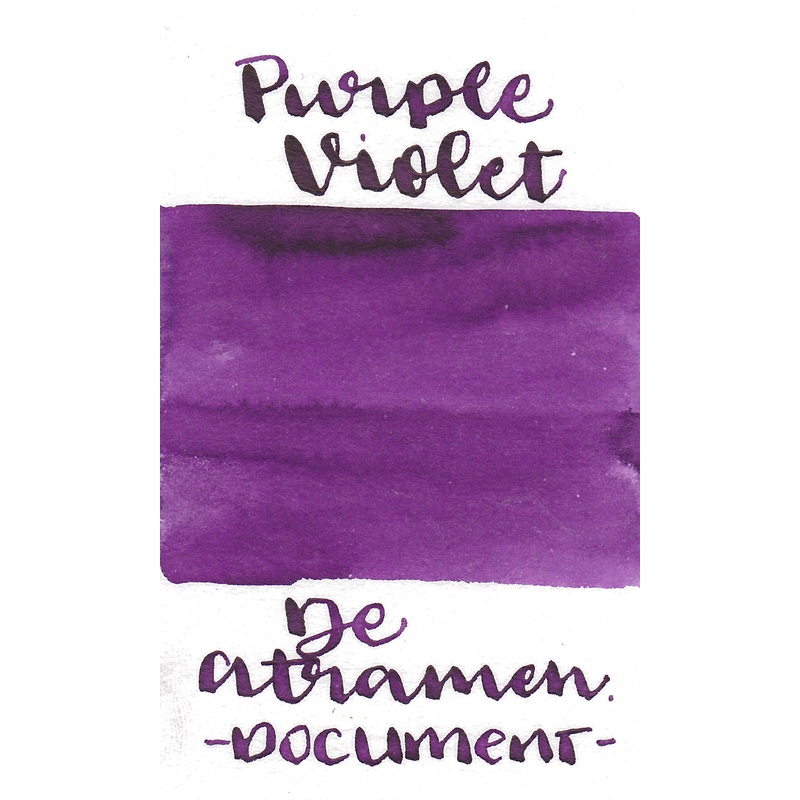 Purple
Violet
De
atramen.
-DOCUMENT-